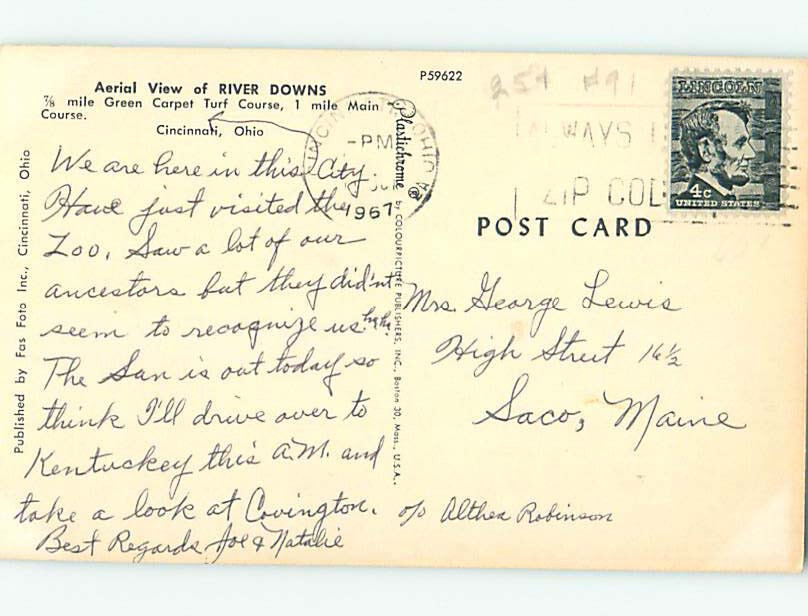 P59622
25¢ #91
Aerial View of RIVER DOWNS
⅞ mile Green Carpet Turf Course, 1 mile Main
Course.
Cincinnati, Ohio
-PM
1967
ALWAYS
ZIP COD
LINCOLN
4c
UNITED STATES
We are here in this City.
Have just visited the
Zoo. Saw a lot of our
ancestors but they did'nt
seem to recognize us. ha ha.
The Sun is out today so
think I'll drive over to
Kentuckey this A.M. and
take a look at Covington.
Best Regards Joe & Natalie
Published by Fas Foto Inc., Cincinnati, Ohio
Plastichrome ® by COLOURPICTURE PUBLISHERS, INC., Boston 30, Mass., U.S.A.
POST CARD
Mrs. George Lewis
High Street 16½
Saco, Maine
c/o Althea Robinson